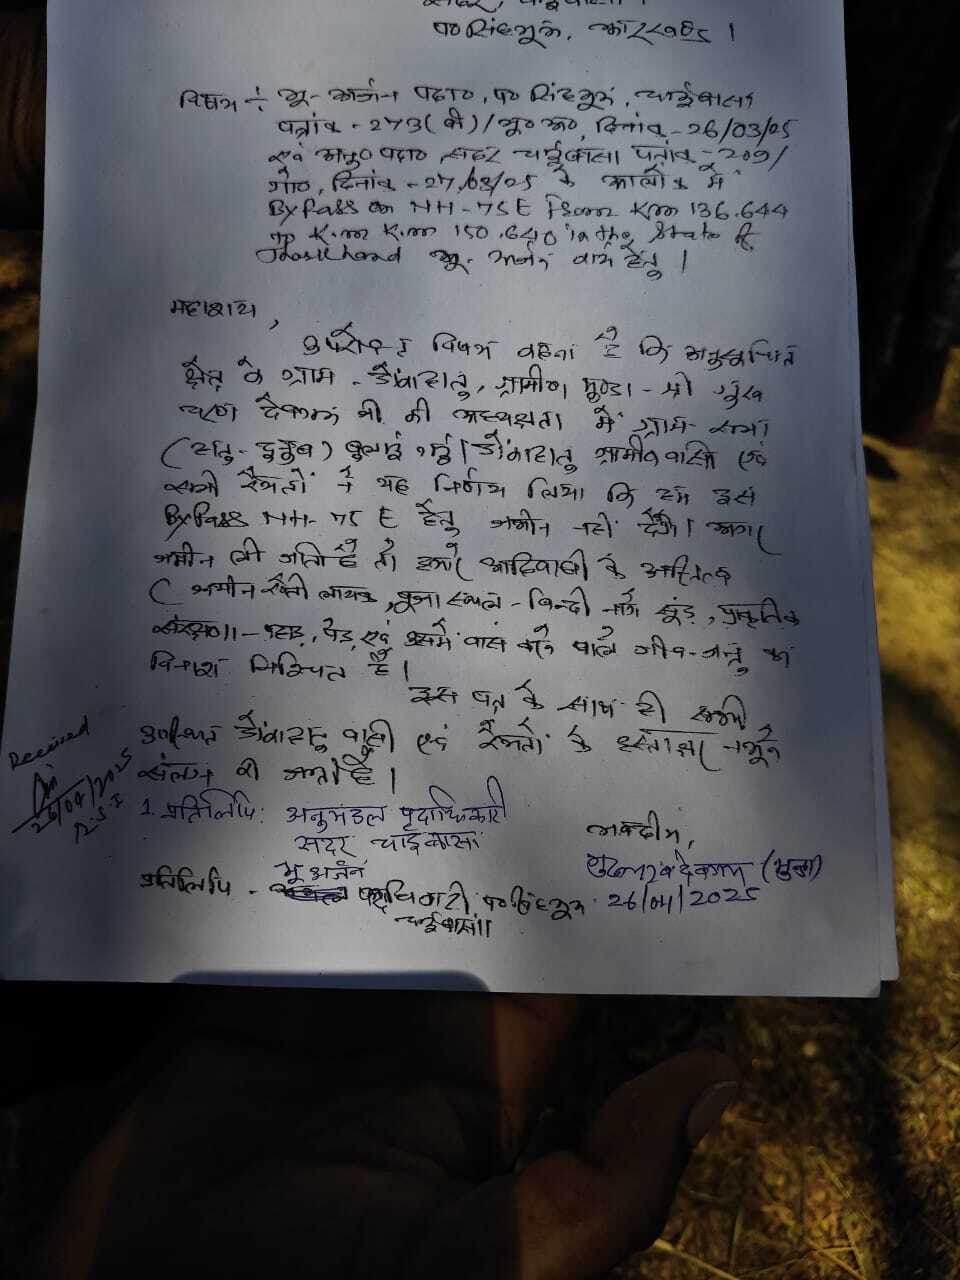 सदर, चाईबासा।
प० सिंहभूम, झारखण्ड।
विषय :- भू-अर्जन पदा०, प० सिंहभूम, चाईबासा
पत्रांक - 273(बी)/भू० अ०, दिनांक - 26/03/25
एवं अनु० पदा० सदर चाईबासा पत्रांक - 209/
गो०, दिनांक - 27/03/25 के आलोक में
ByPass on NH-75E From Km 136.644
K.m K.m 150.640 in the State of
Jharkhand भू-अर्जन हेतु।
महाशय,
उपरोक्त विषय कहना है कि अनुसूचित
क्षेत्र के ग्राम - ग्रामीण मुण्डा - श्री
चरण देवगम जी की अध्यक्षता में ग्राम-सभा
बुलाई गई। ग्रामीण वासी एवं
सभी रैयतों ने यह निर्णय लिया कि हम इस
ByPass NH-75 E हेतु जमीन नहीं देंगे। अगर
जमीन ली जाती है तो हमारे आदिवासी के अस्तित्व
(जमीन खेती लायक, पूजा स्थल - , प्राकृतिक
संरक्षण - पहाड़, पेड़ एवं उसमें वास करने वाले जीव-जन्तु का
विनाश निश्चित है।
इस पत्र के साथ ही सभी
उपस्थित वासी एवं रैयतों के हस्ताक्षर नमूने
संलग्न की जाती है।
Received
26/04/2025
1. प्रतिलिपि: अनुमंडल पदाधिकारी
सदर चाईबासा
भवदीय,
देवगम (मुण्डा)
26/04/2025
भू अर्जन
प्रतिलिपि - पदाधिकारी प० सिंहभूम
चाईबासा